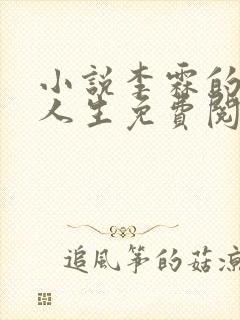 小說李霖的
人生免費閱
追風筝的菇涼